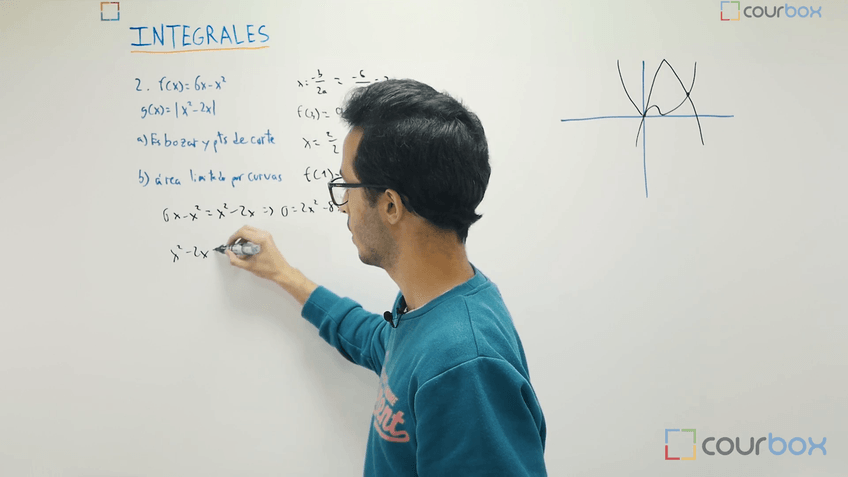 courbox
INTEGRALES
2. f(x) = 6x-x²
g(x) = |x²-2x|
a) Esbozar y pts de corte
b) área limitada por curvas
x = -b/2a = -6/
f(3) =
x = 2/2
f(1) =
6x-x² = x²-2x => 0 = 2x²-8
x²-2x
courbox